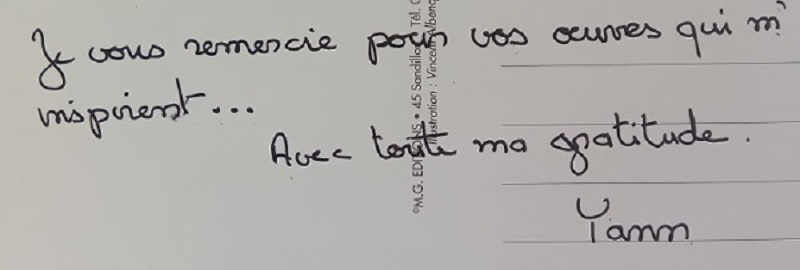 Je vous remercie pour vos œuvres qui m'
inspirent...
Avec toute ma gratitude.
Yann
©M.G. EDITIONS • 45 Sandillon Tél.
Illustration : Vincent